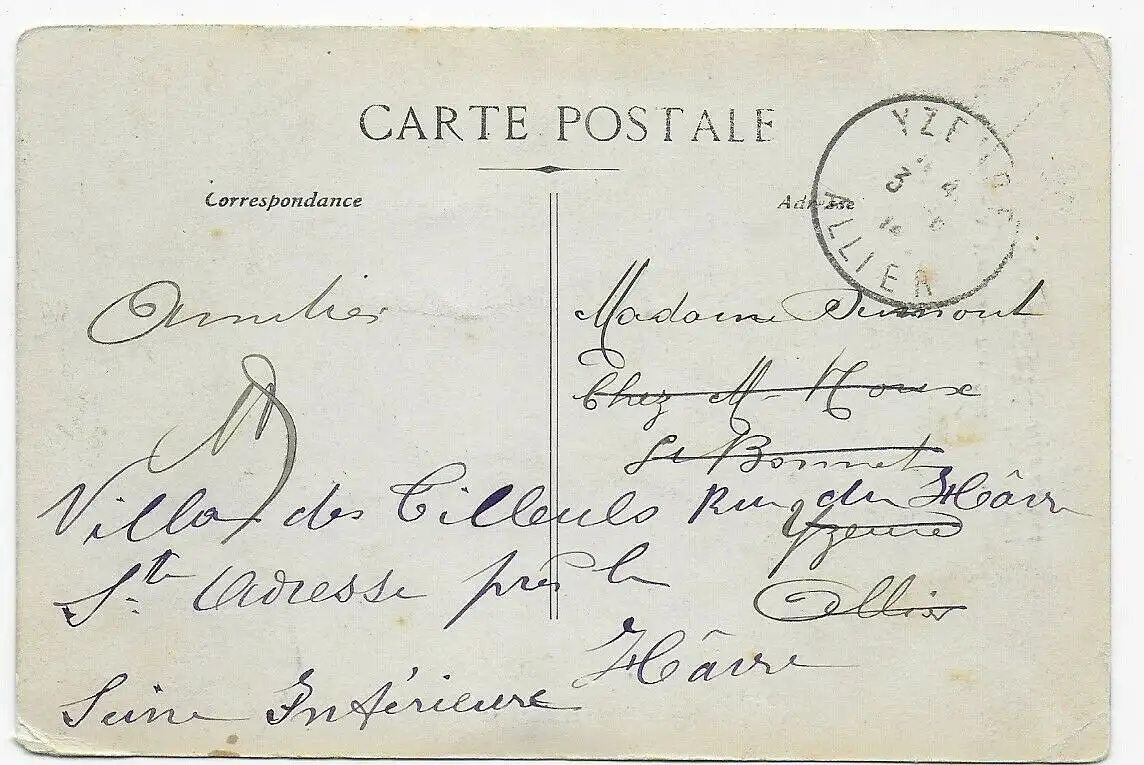 CARTE POSTALE
Correspondance
Adresse
YZEURE
3 4
ALLIER
Amitiés
Madame Dumont
Chez M. Roux
St Bonnet
Yzeure
Allier
Villa des Tilleuls Rue du Hâvre
Ste Adresse près le
Hâvre
Seine Inférieure